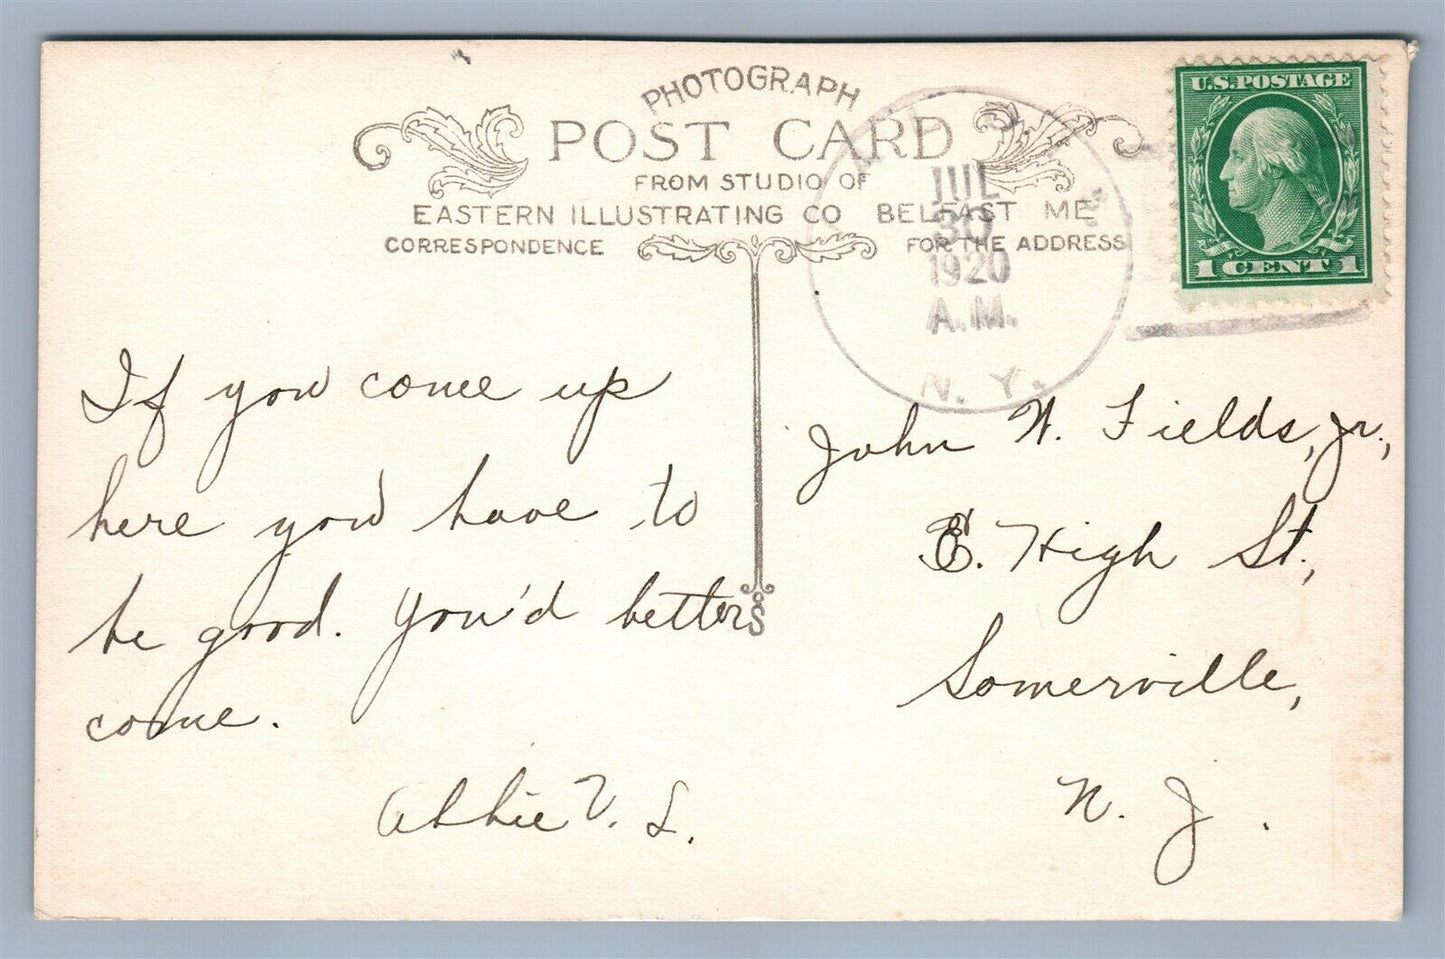 PHOTOGRAPH
POST CARD
FROM STUDIO OF
EASTERN ILLUSTRATING CO BELFAST ME
CORRESPONDENCE
FOR THE ADDRESS
JUL
30
1920
A.M.
N. Y.
U.S. POSTAGE
1 CENT 1
If you come up
here you have to
be good. You'd better
come.
Abbie V. S.
John W. Fields, Jr.,
E. High St.,
Somerville,
N. J.